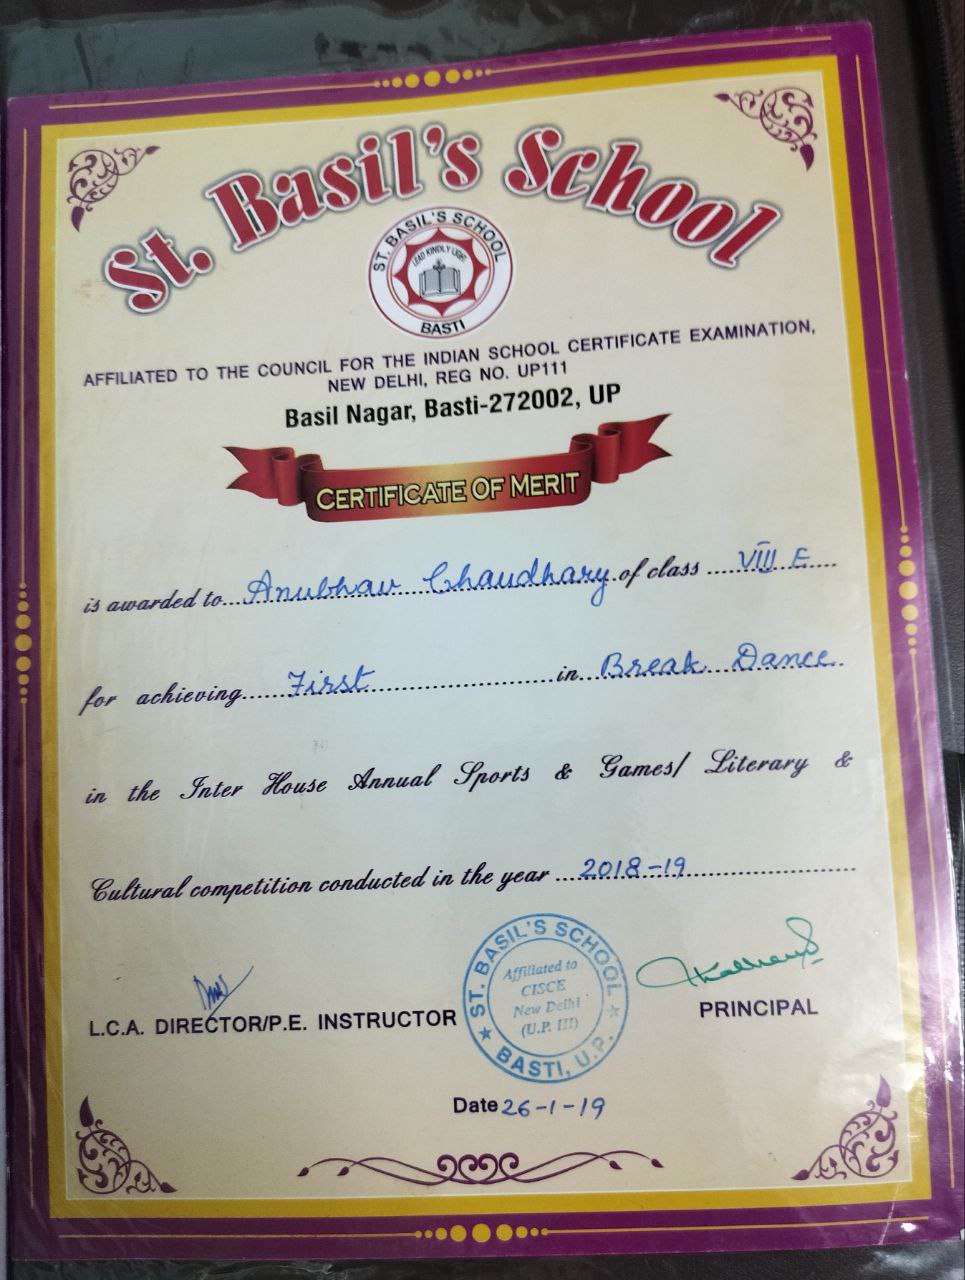 St. Basil's School
ST. BASIL'S SCHOOL
LEAD KINDLY LIGHT
BASTI
AFFILIATED TO THE COUNCIL FOR THE INDIAN SCHOOL CERTIFICATE EXAMINATION,
NEW DELHI, REG NO. UP111
Basil Nagar, Basti-272002, UP
CERTIFICATE OF MERIT
is awarded to Anubhav Chaudhary of class VIII E
for achieving First in Break Dance
in the Inter House Annual Sports & Games/ Literary &
Cultural competition conducted in the year 2018-19
ST. BASIL'S SCHOOL
Affiliated to
CISCE
New Delhi
(U.P. III)
BASTI, U.P.
L.C.A. DIRECTOR/P.E. INSTRUCTOR
PRINCIPAL
Date 26-1-19